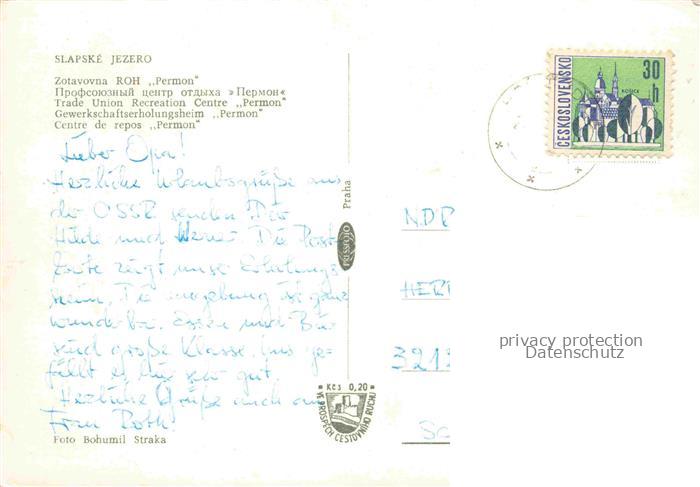 SLAPSKÉ JEZERO
Zotavovna ROH „Permon"
Профсоюзный центр отдыха »Пермон«
Trade Union Recreation Centre „Permon"
Gewerkschaftserholungsheim „Permon"
Centre de repos „Permon"
Lieber Opa!
Herzliche Urlaubsgrüße aus
der ČSSR senden Dir
Hilde und Werner. Die Post-
karte zeigt unser Erholungs-
heim. Die Umgebung ist ganz
wunderbar. Essen und Bier
sind große Klasse. Uns ge-
fällt es hier sehr gut.
Herzliche Grüße auch an
Frau Roth!
Foto Bohumil Straka
Praha
PRESSFOTO
Kčs 0,20
VE PROSPĚCH CESTOVNÍHO RUCHU
ČESKOSLOVENSKO
30 h
KOŠICE
HER
321
privacy protection
Datenschutz